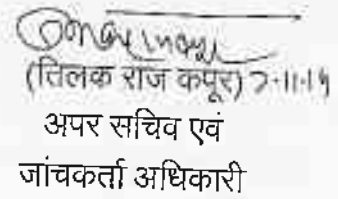 (तिलक राज कपूर)
अपर सचिव एवं
जांचकर्ता अधिकारी